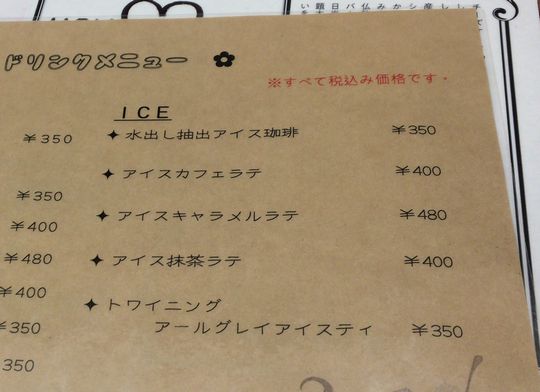 ドリンクメニュー
※すべて税込み価格です。
ICE
¥350
✦ 水出し抽出アイス珈琲 ¥350
✦ アイスカフェラテ ¥400
¥350
✦ アイスキャラメルラテ ¥480
¥400
¥480
✦ アイス抹茶ラテ ¥400
¥400
✦ トワイニング
アールグレイアイスティ ¥350
¥350
350